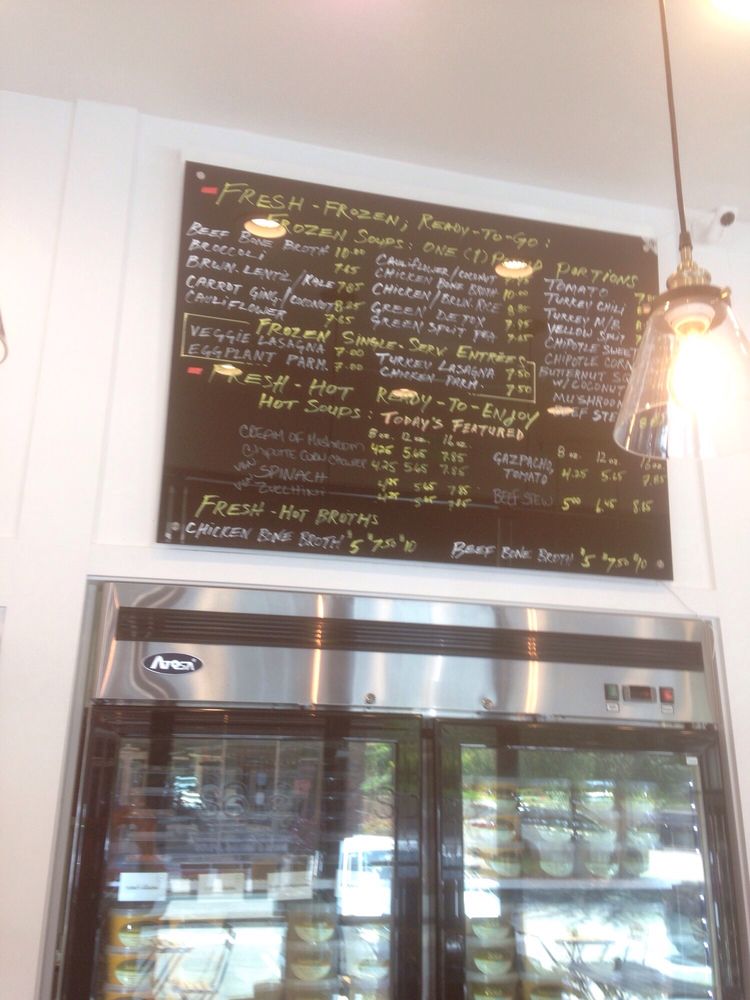 FRESH-FROZEN; READY-TO-GO:
FROZEN SOUPS: ONE (1) PORTIONS
BEEF BONE BROTH 10.00
BROCCOLI 7.65
BRWN. LENTIL/KALE 7.85
CARROT GING./COCONUT 8.25
CAULIFLOWER 7.65
CAULIFLOWER/COCONUT
CHICKEN BONE BROTH 10.00
CHICKEN/BRWN. RICE
GREEN DETOX
GREEN SPLIT PEA
TOMATO
TURKEY CHILI
TURKEY M/B
YELLOW SPLIT
CHIPOTLE SWEET
CHIPOTLE CORN
BUTTERNUT
W/ COCONUT
MUSHROOM
BEEF STEW
FROZEN SINGLE-SERV ENTRÉES
VEGGIE LASAGNA 7.00
EGGPLANT PARM. 7.00
TURKEY LASAGNA 7.50
CHICKEN PARM. 7.50
FRESH-HOT READY-TO-ENJOY
HOT SOUPS: TODAY'S FEATURED
8 oz. 12 oz. 16 oz.
CREAM OF MUSHROOM 4.25 5.65 7.85
CHIPOTLE CORN CHOWDER 4.25 5.65 7.85
SPINACH 4.25 5.65 7.85
ZUCCHINI 4.25 5.65 7.85
8 oz. 12 oz. 16 oz.
GAZPACHO,
TOMATO 4.25 5.65 7.85
BEEF STEW 5.00 6.45 8.65
FRESH-HOT BROTHS
CHICKEN BONE BROTH $5 $7.50 $10
BEEF BONE BROTH $5 $7.50 $10
Atosa